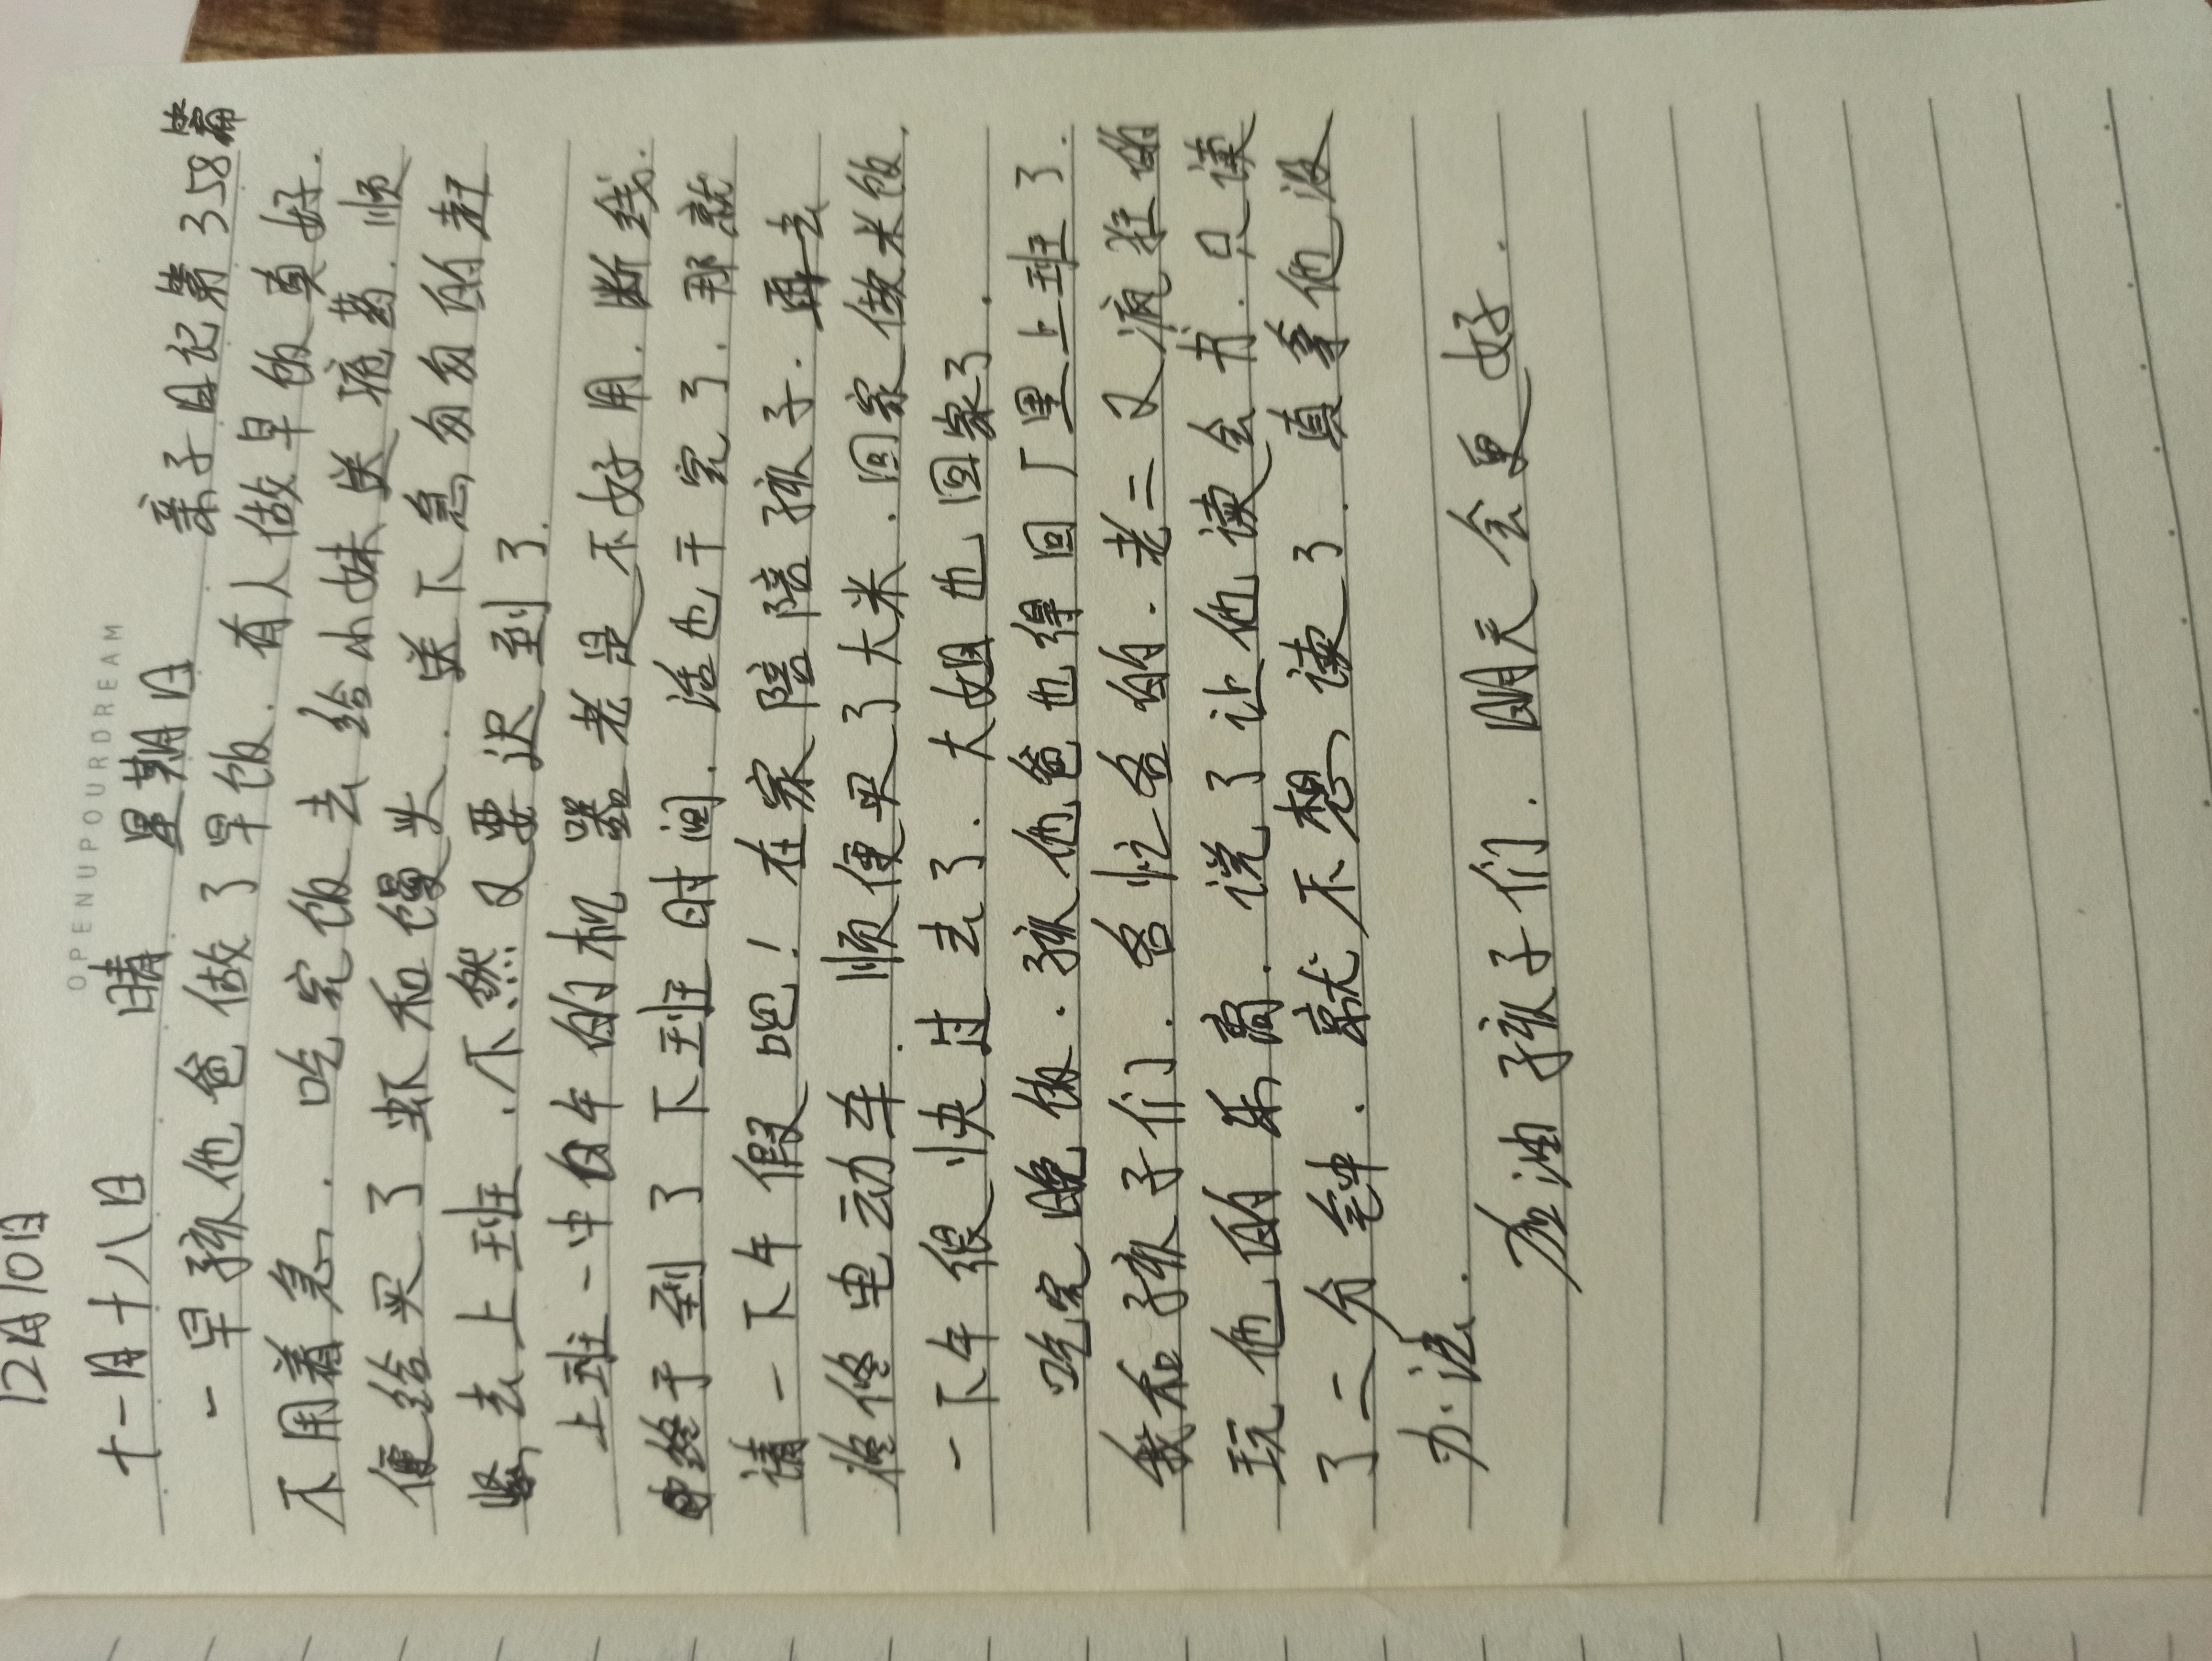 OPENUPOURDREAM
12月10日
十一月十八日 晴 星期日 亲子日记第358篇
一早孩他爸做了早饭.有人做早饭真好.
不用着急.吃完饭去给小妹送疮药.顺
便给买了虾和馒头.送下急匆匆的赶
紧去上班.不然又要迟到了.
上班一中白午的机器老是不好用.断线.
终于到了下班时间.活也干完了.那就
请一下午假吧!在家陪陪孩子.再去
修修电动车.顺便买了大米.回家做米饭.
一下午很快过去了.大姐也回家了.
吃完晚饭.孩他爸也得回厂里上班了.
我和孩子们.各忙各的.老二又疯狂的
玩他的乐高.说了让他读会书.只读
了二分钟.就不想读了.真拿他没
办法.
加油孩子们.明天会更好.